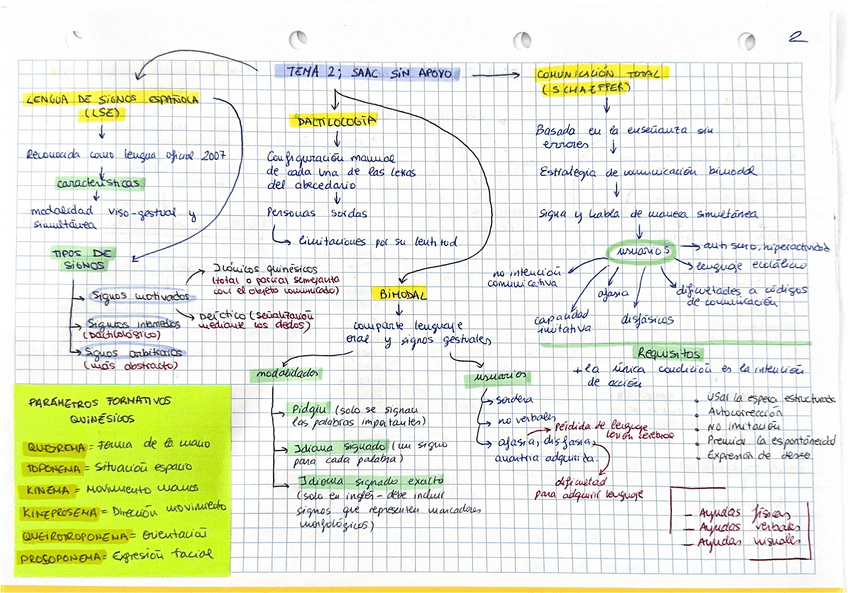 2
TEMA 2; SAAC SIN APOYO
LENGUA DE SIGNOS ESPAÑOLA
(LSE)
Reconocida como lengua oficial 2007
características
modalidad viso-gestual y
simultánea
TIPOS DE
SIGNOS
Signos motivados
Icónicos quinésicos
(total o parcial semejanza
con el objeto comunicado)
Deíctico (señalización
mediante los dedos)
Signos intermedios
(Dactilológico)
Signos arbitrarios
(más abstracto)
PARÁMETROS FORMATIVOS
QUINÉSICOS
QUEIREMA = Forma de la mano
TOPONEMA = Situación espacio
KINEMA = Movimiento manos
KINEPROSEMA = Dirección movimiento
QUEIROTROPONEMA = Orientación
PROSOPONEMA = Expresión facial
DACTILOLOGÍA
Configuración manual
de cada una de las letras
del abecedario
Personas sordas
limitaciones por su lentitud
BIMODAL
comparte lenguaje
oral y signos gestuales
modalidades
Pidgin (solo se signan
las palabras importantes)
Idioma signado (un signo
para cada palabra)
Idioma signado exacto
(solo en inglés - debe incluir
signos que representen marcadores
morfológicos)
usuarios
sordera
no verbales
afasia, disfasia,
anartria adquirida.
Pérdida de lenguaje
lesión cerebral
dificultad
para adquirir lenguaje
COMUNICACIÓN TOTAL
(SCHAEFFER)
Basada en la enseñanza sin
errores
Estrategia de comunicación bimodal
Signa y habla de manera simultánea
usuarios
autismo, hiperactividad
lenguaje ecolálico
dificultades a códigos
de comunicación
disfásicos
afasia
capacidad
imitativa
no intención
comunicativa
Requisitos
+ la única condición es la intención
de acción
• Usar la espera estructurada
• Autocorrección
• No imitación
• Premiar la espontaneidad
• Expresión de deseo
- Ayudas físicas
- Ayudas verbales
- Ayudas visuales